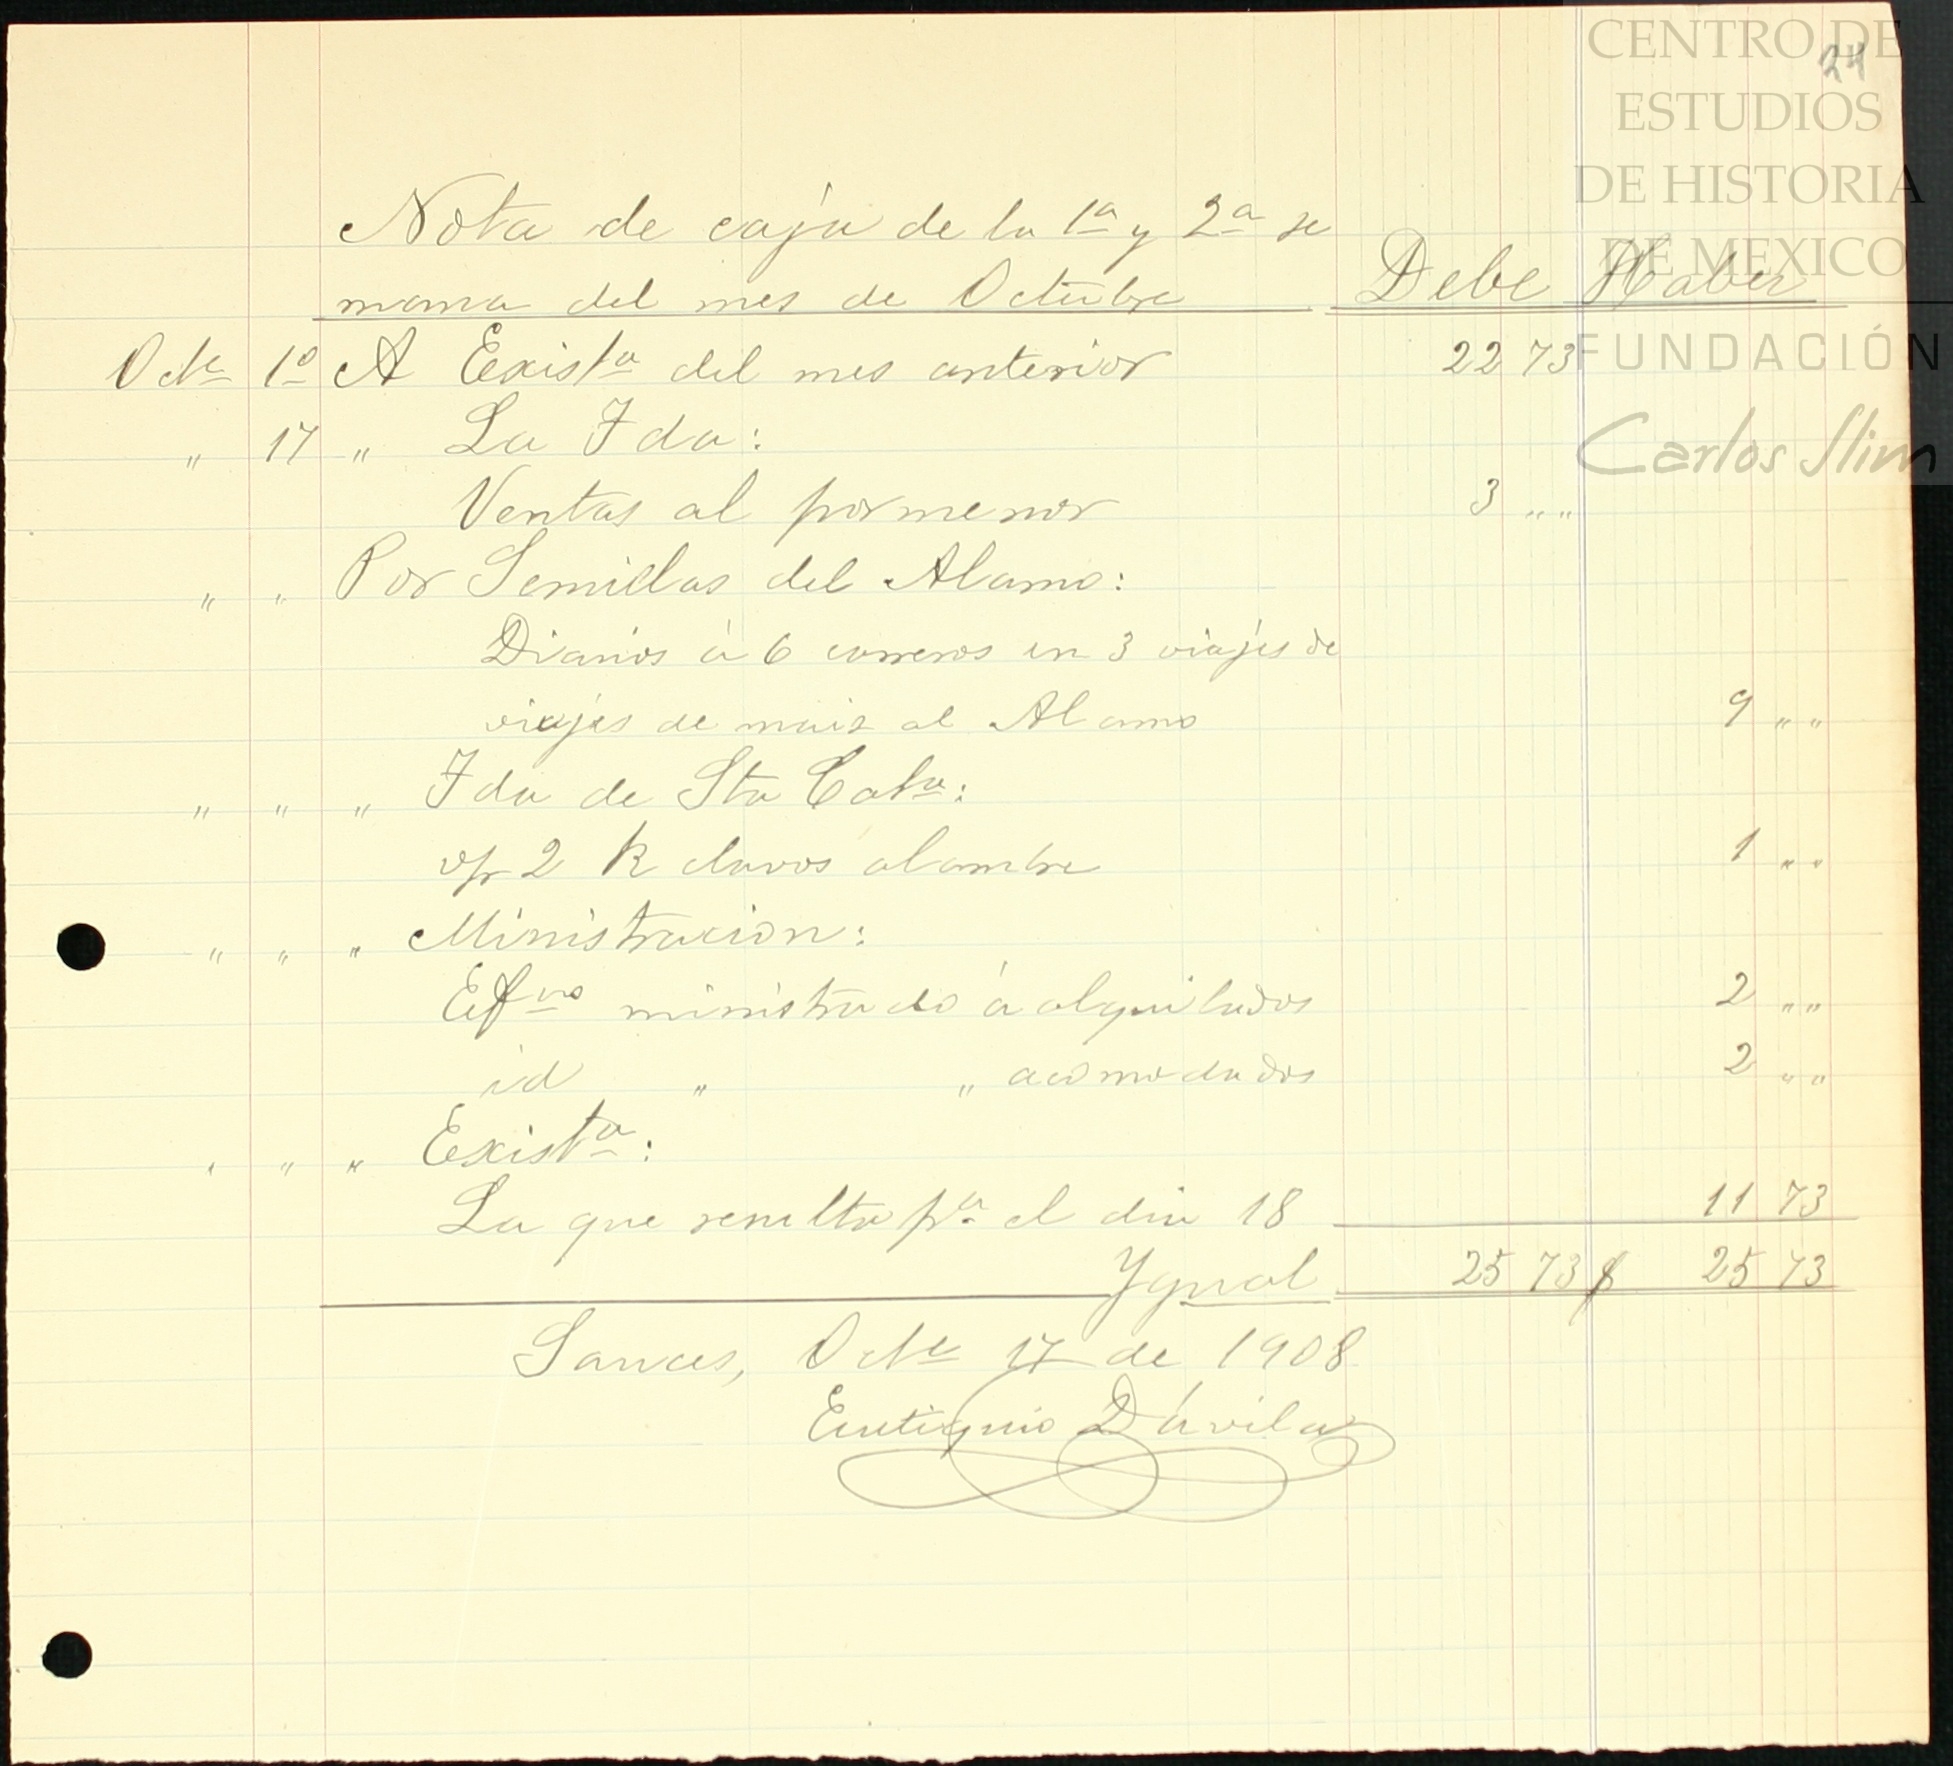 CENTRO DE
ESTUDIOS
DE HISTORIA
DE MEXICO
FUNDACIÓN
Carlos Slim
24
Nota de caja de la 1ª y 2ª se
mana del mes de Octubre Debe Haber
Octe 1º A Existª del mes anterior 22 73
" 17 " La Fda:
Ventas al pormenor 3 " "
" " Por Semillas del Alamo:
Diarios á 6 carreros en 3 viajes de
viajes de maiz al Alamo 9 " "
" " " Fda de Sta Catª:
v/r 2 K clavos alambre 1 " "
" " " Ministracion:
Efvo ministrado á alquilados 2 " "
id " " acomodados 2 " "
" " " Existª:
La que resulta pª el dia 18 11 73
Ygual 25 73 $ 25 73
Sauces, Octe 17 de 1908
Eutiquio Dávila